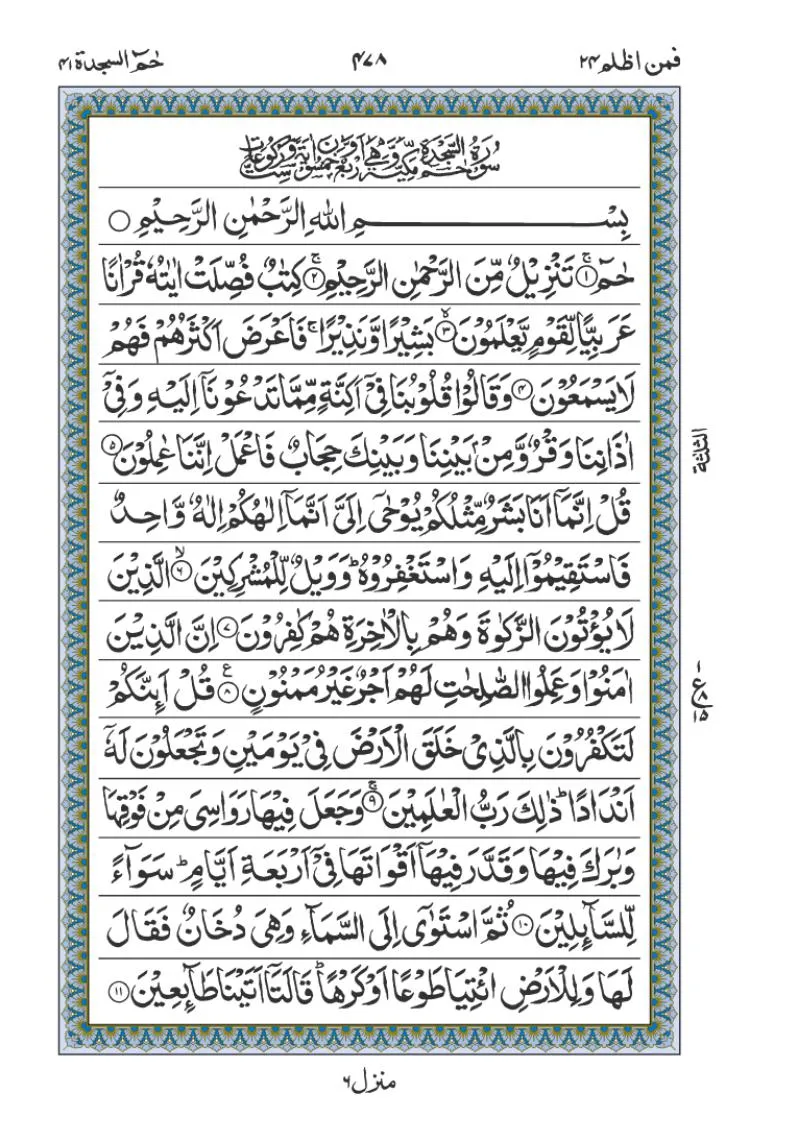 فمن اظلم ۲۴
۴۷۸
حٰمٓ السجدة ۴۱
سُوْرَةُ حٰمٓ السَّجْدَةِ مَكِّيَّةٌ وَّهِيَ اَرْبَعٌ وَّخَمْسُوْنَ اٰيَةً وَّسِتُّ رُكُوْعَاتٍ
بِسْـــــــــــــمِ اللّٰهِ الرَّحْمٰنِ الرَّحِيْمِ ○
حٰمٓ ۚ﴿۱﴾ تَنْزِيْلٌ مِّنَ الرَّحْمٰنِ الرَّحِيْمِ ۚ﴿۲﴾ كِتٰبٌ فُصِّلَتْ اٰيٰتُهٗ قُرْاٰنًا
عَرَبِيًّا لِّقَوْمٍ يَّعْلَمُوْنَ ۙ﴿۳﴾ بَشِيْرًا وَّنَذِيْرًا ۚ فَاَعْرَضَ اَكْثَرُهُمْ فَهُمْ
لَا يَسْمَعُوْنَ ﴿۴﴾ وَقَالُوْا قُلُوْبُنَا فِيْۤ اَكِنَّةٍ مِّمَّا تَدْعُوْنَاۤ اِلَيْهِ وَفِيْۤ
اٰذَانِنَا وَقْرٌ وَّمِنْۢ بَيْنِنَا وَبَيْنِكَ حِجَابٌ فَاعْمَلْ اِنَّنَا عٰمِلُوْنَ ﴿۵﴾
قُلْ اِنَّمَاۤ اَنَا بَشَرٌ مِّثْلُكُمْ يُوْحٰۤى اِلَيَّ اَنَّمَاۤ اِلٰهُكُمْ اِلٰهٌ وَّاحِدٌ
فَاسْتَقِيْمُوْۤا اِلَيْهِ وَاسْتَغْفِرُوْهُ ؕ وَوَيْلٌ لِّلْمُشْرِكِيْنَ ۙ﴿۶﴾ الَّذِيْنَ
لَا يُؤْتُوْنَ الزَّكٰوةَ وَهُمْ بِالْاٰخِرَةِ هُمْ كٰفِرُوْنَ ﴿۷﴾ اِنَّ الَّذِيْنَ
اٰمَنُوْا وَعَمِلُوا الصّٰلِحٰتِ لَهُمْ اَجْرٌ غَيْرُ مَمْنُوْنٍ ﴿۸﴾ ع قُلْ اَئِنَّكُمْ
لَتَكْفُرُوْنَ بِالَّذِيْ خَلَقَ الْاَرْضَ فِيْ يَوْمَيْنِ وَتَجْعَلُوْنَ لَهٗۤ
اَنْدَادًا ؕ ذٰلِكَ رَبُّ الْعٰلَمِيْنَ ۚ﴿۹﴾ وَجَعَلَ فِيْهَا رَوَاسِيَ مِنْ فَوْقِهَا
وَبٰرَكَ فِيْهَا وَقَدَّرَ فِيْهَاۤ اَقْوَاتَهَا فِيْۤ اَرْبَعَةِ اَيَّامٍ ؕ سَوَآءً
لِّلسَّآئِلِيْنَ ﴿۱۰﴾ ثُمَّ اسْتَوٰۤى اِلَى السَّمَآءِ وَهِيَ دُخَانٌ فَقَالَ
لَهَا وَلِلْاَرْضِ ائْتِيَا طَوْعًا اَوْ كَرْهًا ؕ قَالَتَاۤ اَتَيْنَا طَآئِعِيْنَ ﴿۱۱﴾
الثلٰثة
ع ۸ ۱۵
منزل ۶